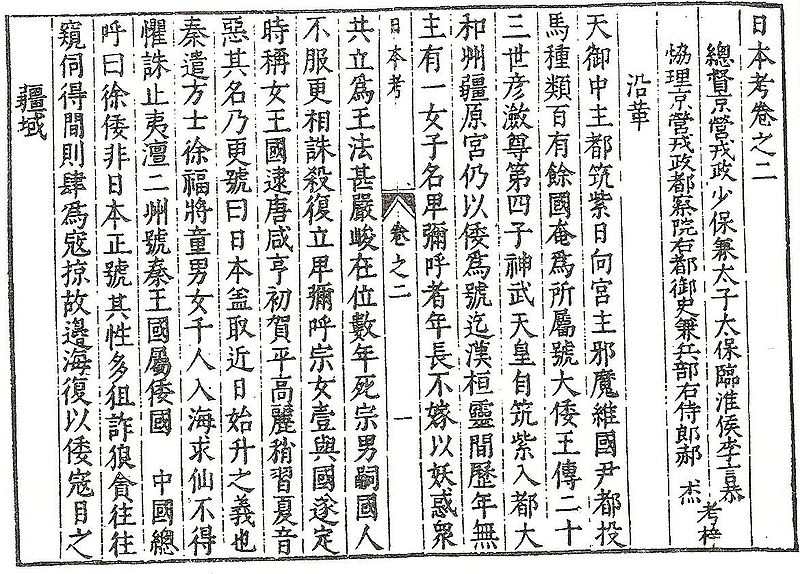 日本考卷之二
總督京營戎政少保兼太子太保臨淮侯李言恭
協理京營戎政都察院右都御史兼兵部右侍郎郝 杰 考梓
沿革
天御中主都筑紫日向宮主邪魔維國尹都投
馬種類百有餘國奄爲所屬號大倭王傳二十
三世彥瀲尊第四子神武天皇自筑紫入都大
和州疆原宮仍以倭爲號迄漢桓靈間歷年無
主有一女子名卑彌呼者年長不嫁以妖惑衆
日本考 卷之二 一
共立爲王法甚嚴峻在位數年死宗男嗣國人
不服更相誅殺復立卑彌呼宗女壹與國遂定
時稱女王國逮唐咸亨初賀平高麗稍習夏音
惡其名乃更號曰日本盖取近日始升之義也
秦遣方士徐福將童男女千人入海求仙不得
懼誅止夷澶二州號秦王國屬倭國 中國總
呼曰徐倭非日本正號其性多狙詐狼貪往往
窺伺得間則肆爲寇掠故邊海復以倭寇目之
疆域